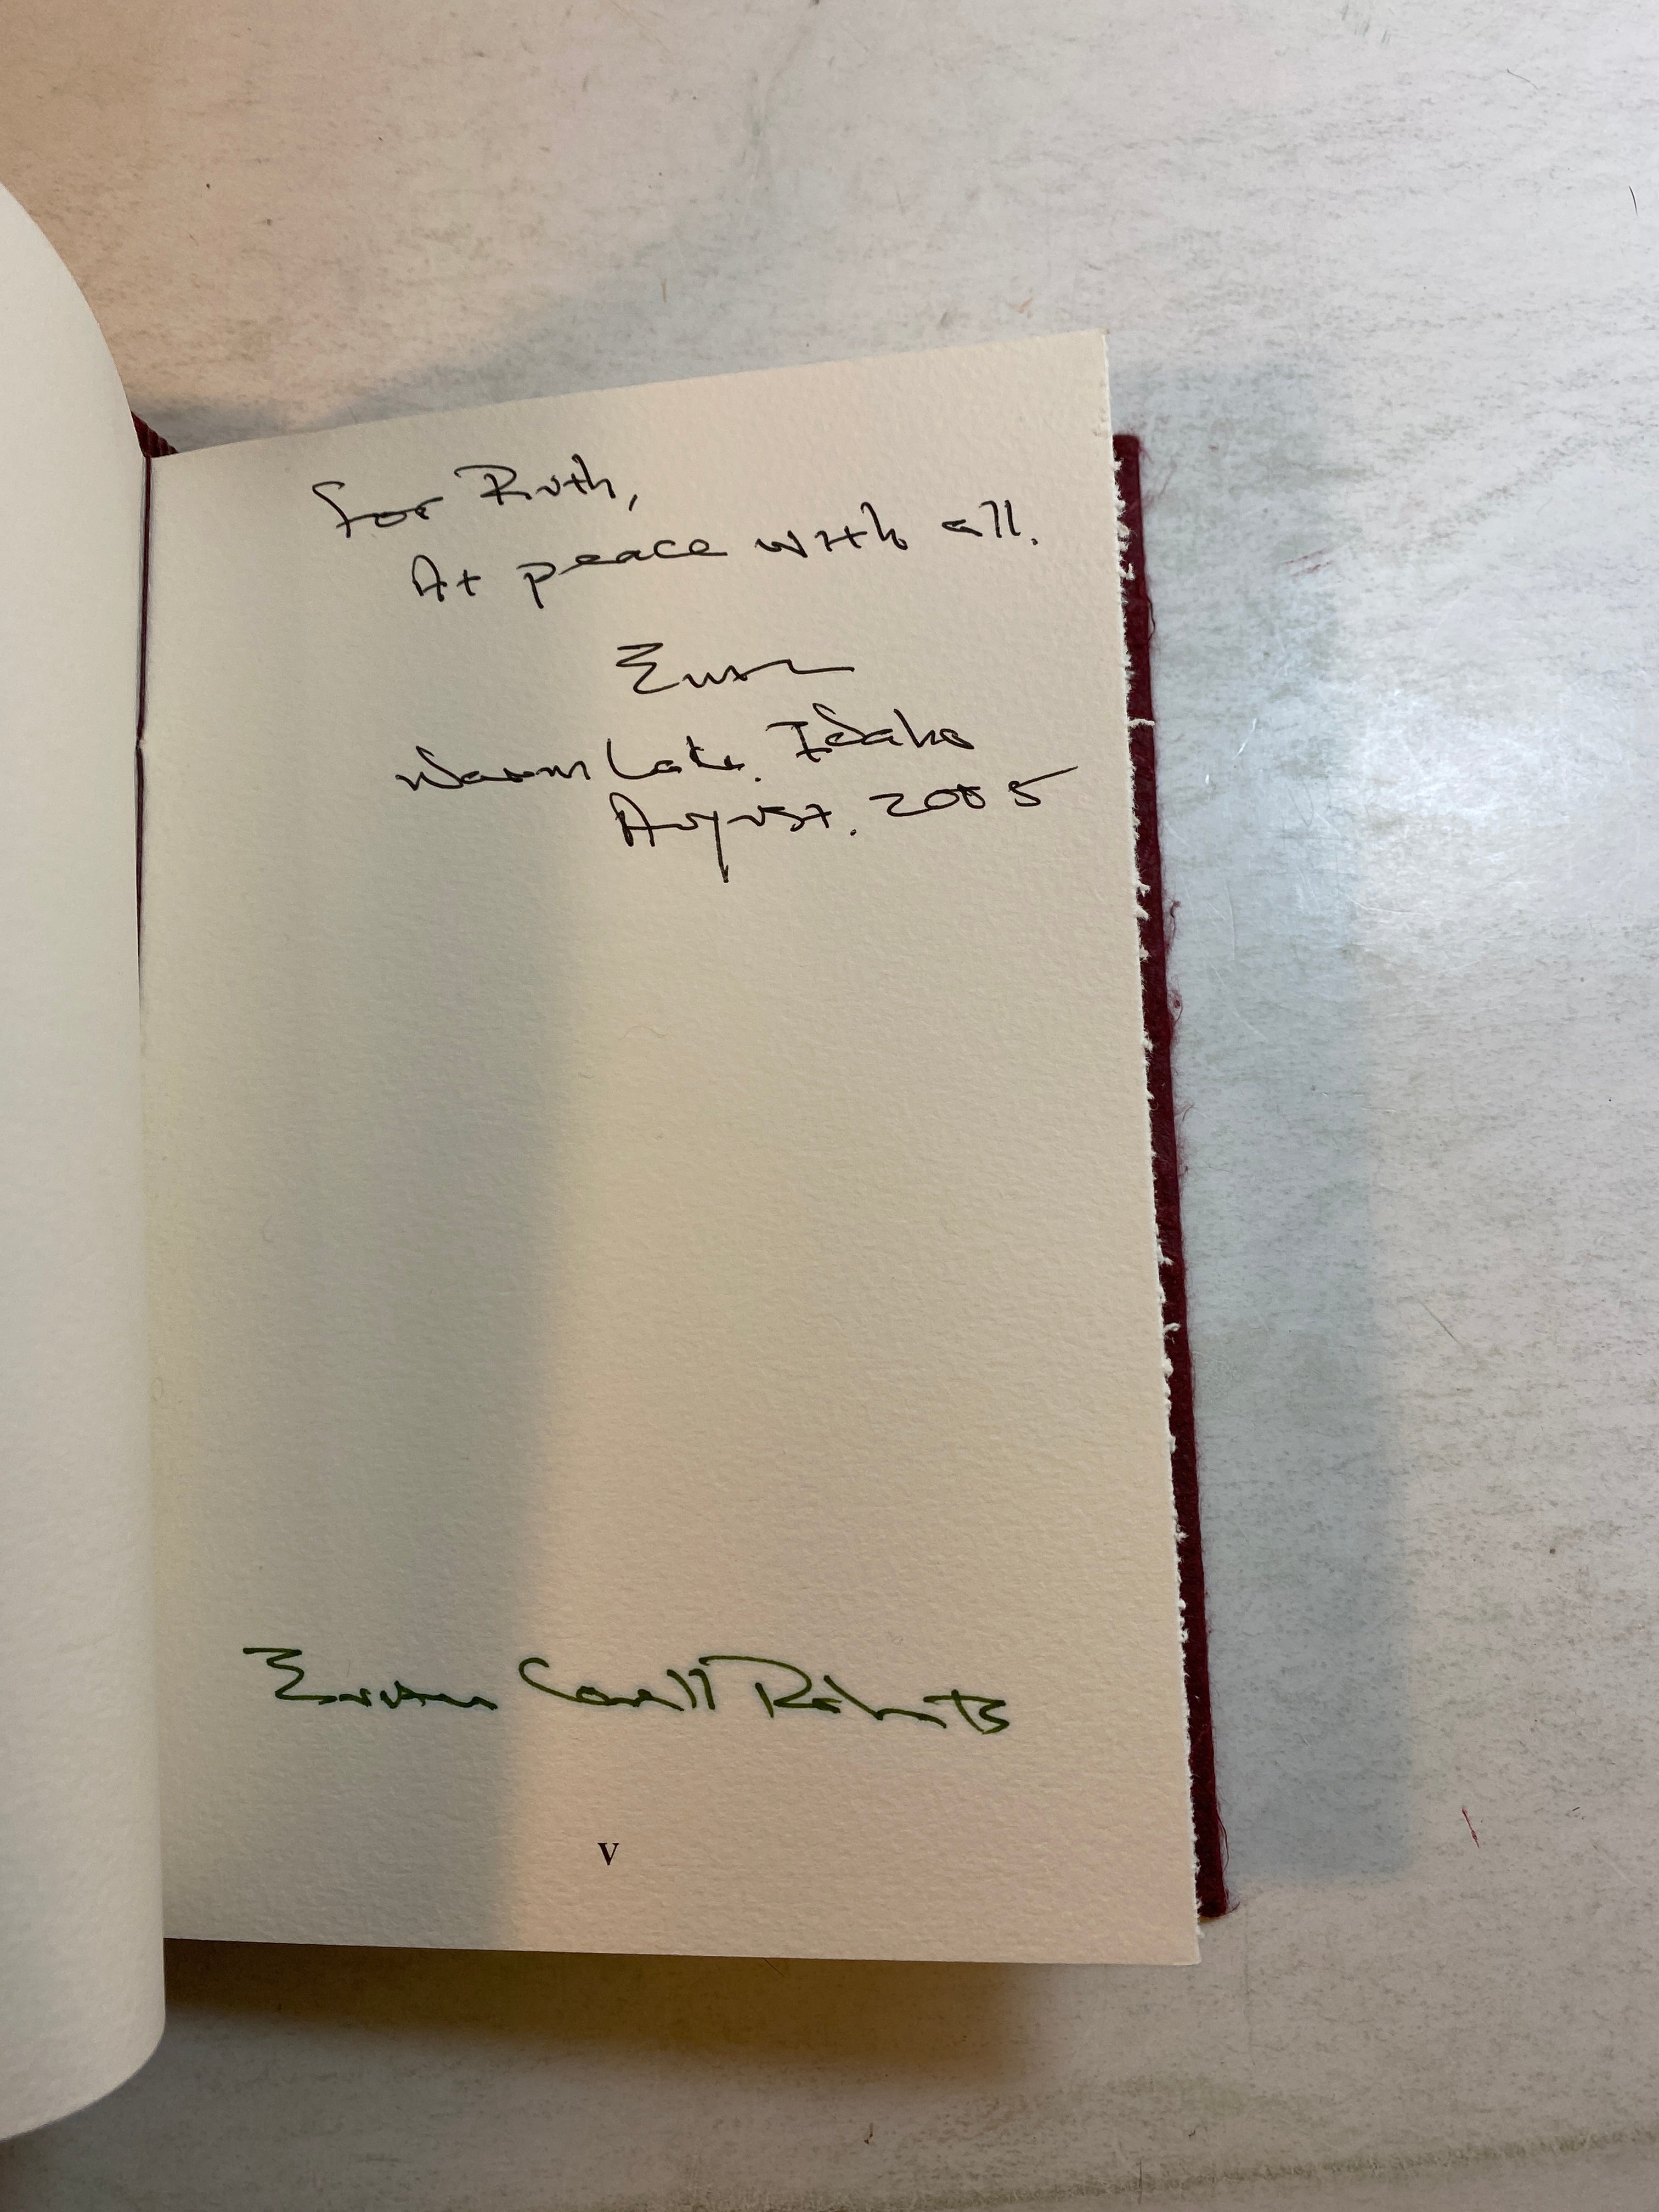 For Ruth,
At peace with all.
Warm Lake. Idaho
August. 2005
Roberts
V